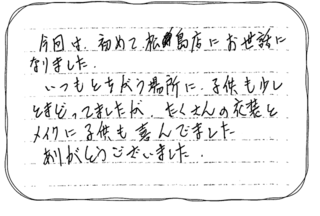 今回は、初めて松島店にお世話に
なりました.
いつもとちがう場所に、子供も少し
とまどってましたが、たくさんの衣装と
メイクに子供も喜んでました
ありがとうございました.